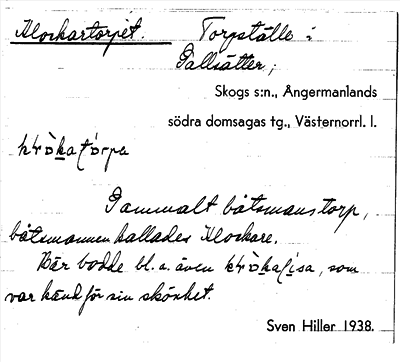 Klockartorpet. Torpställe i
Gallsätter;
Skogs s:n., Ångermanlands
södra domsagas tg., Västernorrl. l.
Gammalt båtsmanstorp,
båtsmannen kallades Klockare.
Här bodde bl. a. även som
var känd för sin skönhet.
Sven Hiller 1938.